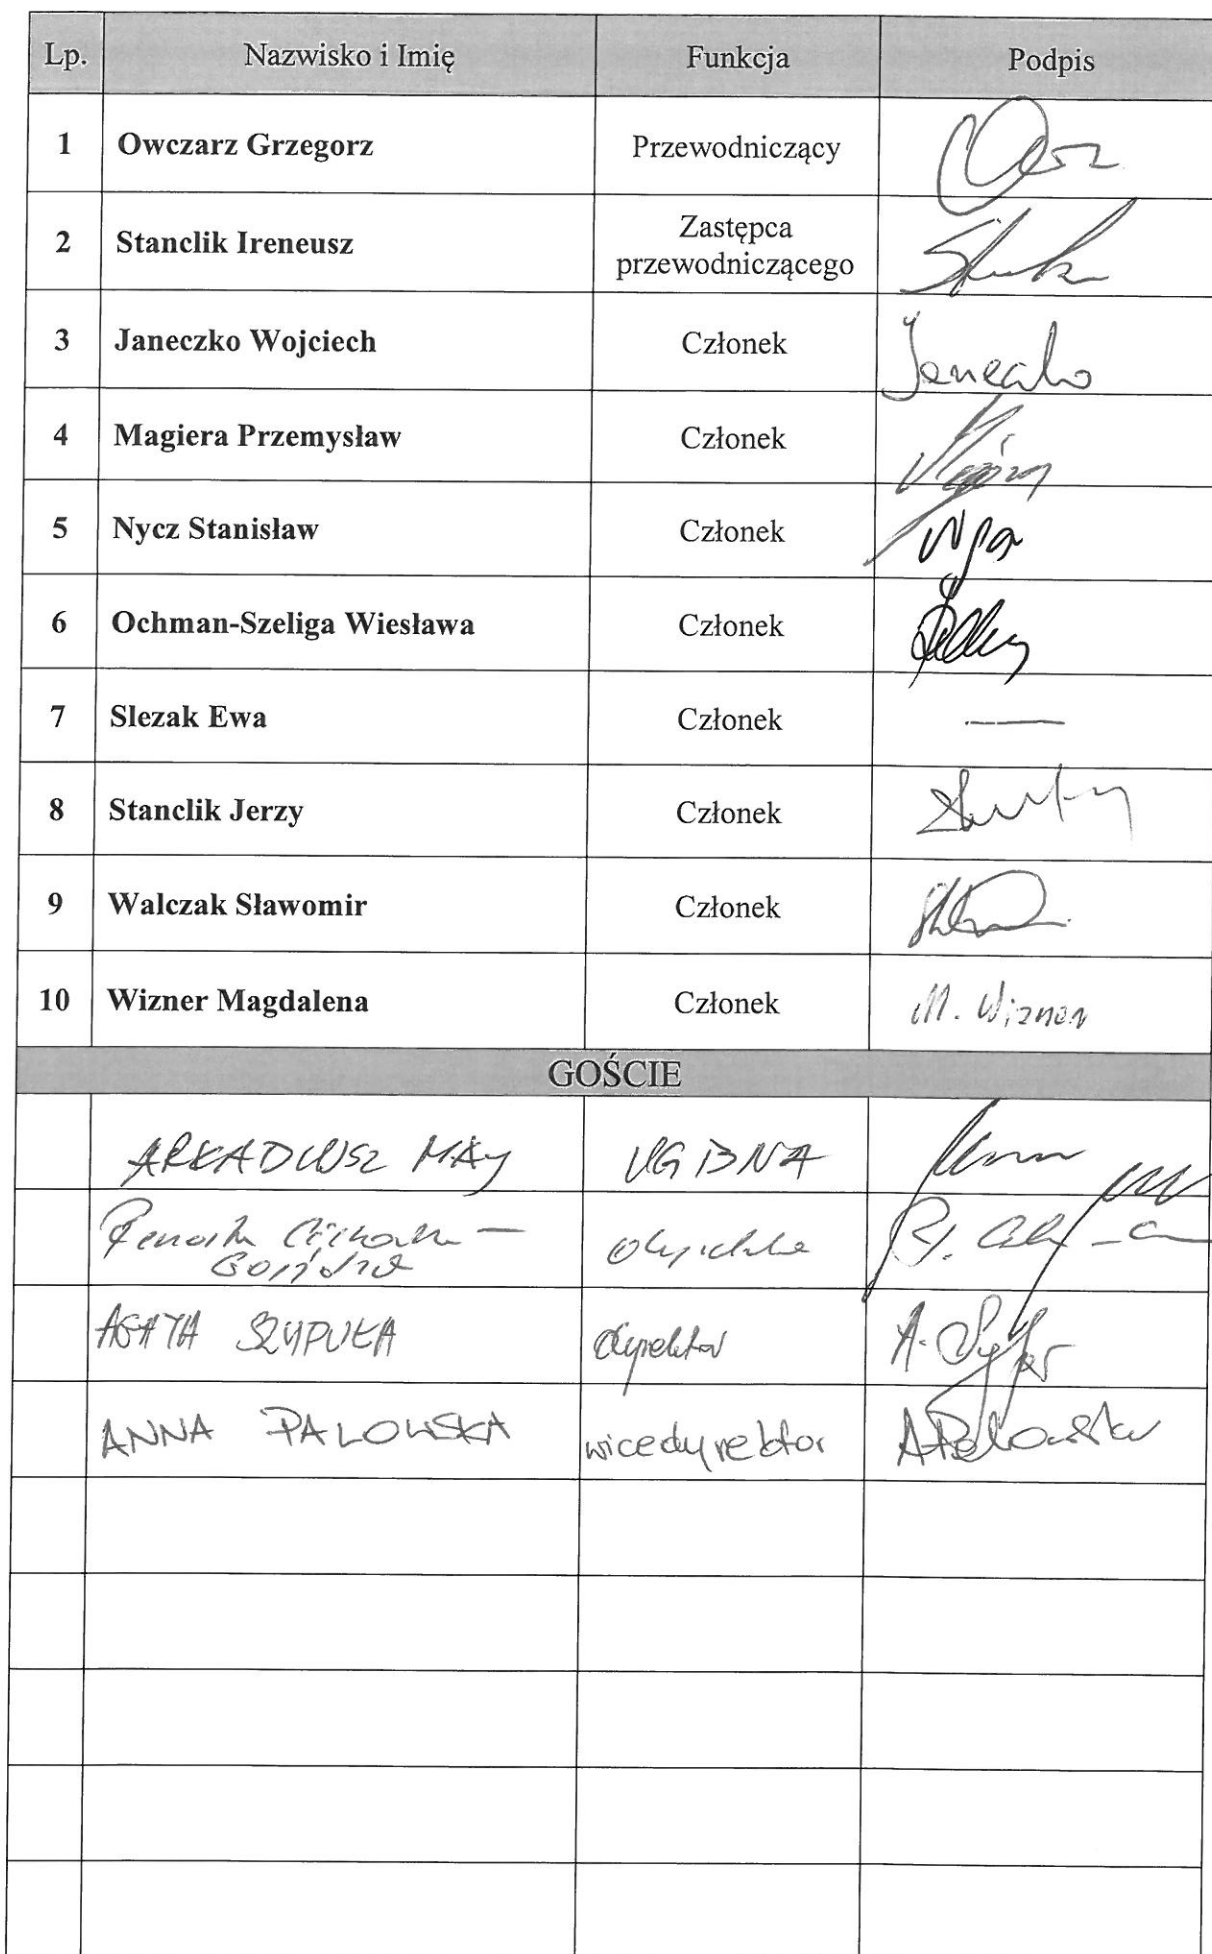 Lp. Nazwisko i Imię Funkcja Podpis
1 Owczarz Grzegorz Przewodniczący
2 Stanclik Ireneusz Zastępca
przewodniczącego
3 Janeczko Wojciech Członek Janeczko
4 Magiera Przemysław Członek
5 Nycz Stanisław Członek
6 Ochman-Szeliga Wiesława Członek
7 Slezak Ewa Członek —
8 Stanclik Jerzy Członek
9 Walczak Sławomir Członek
10 Wizner Magdalena Członek M. Wizner
GOŚCIE
ARKADIUSZ MAY
AGATA SZYPUŁA dyrektor
ANNA PALOWSKA wicedyrektor A Palowska